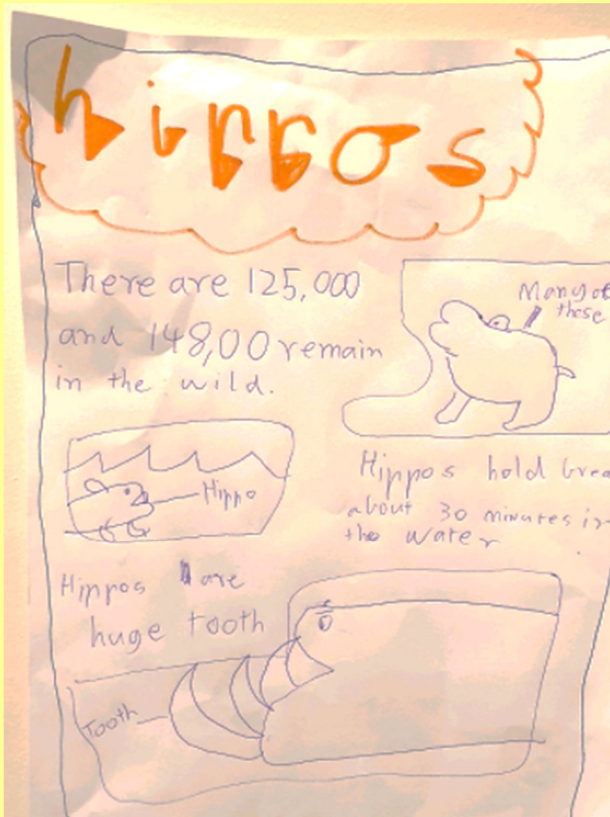 hippos
There are 125,000
and 148,00 remain
in the wild.
Many of
these
Hippo
Hippos hold brea
about 30 minutes in
the water
Hippos are
huge tooth
Tooth